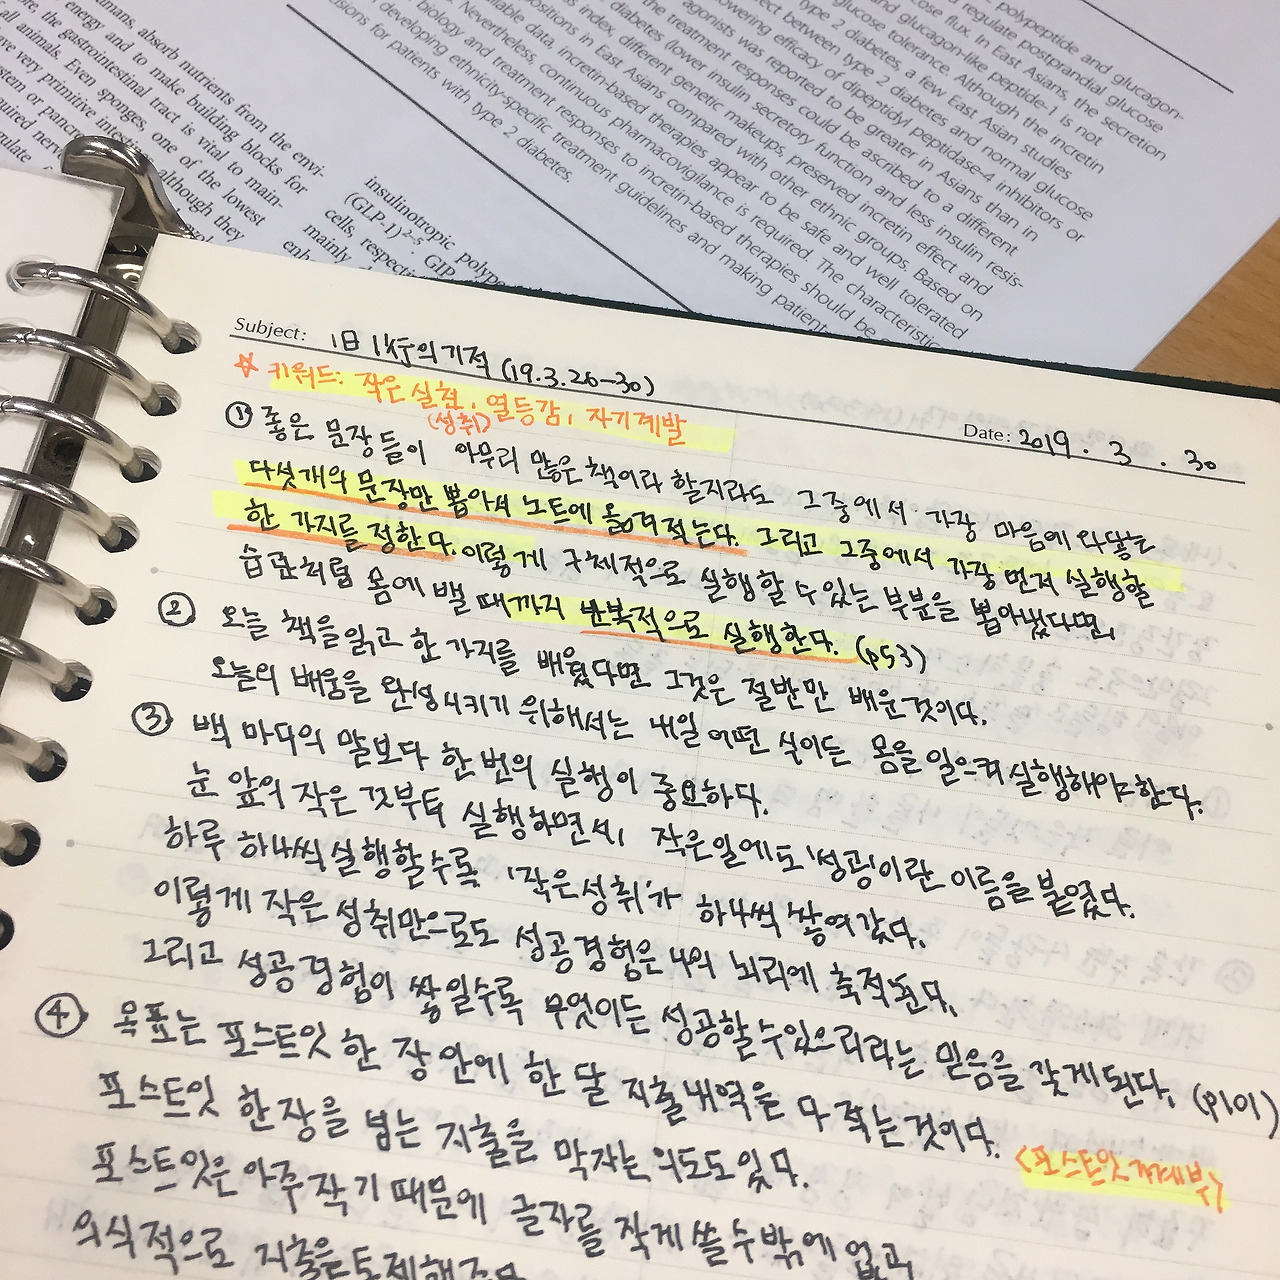 humans, absorb nutrients from the envi-
energy and to make building blocks for
the gastrointestinal tract is vital to main-
all animals. Even sponges, one of the lowest
have very primitive
although they
insulinotropic polype
(GLP-1)2-5. GIP
cells, respecti
mainly
enh
polypeptide and glucagon-
regulate postprandial glucose
glucose flux. In East Asians, the secretion
and glucagon-like peptide-1 is not
glucose tolerance. Although the incretin
type 2 diabetes, a few East Asian studies
between type 2 diabetes and normal glucose
lowering efficacy of dipeptidyl peptidase-4 inhibitors or
agonists was reported to be greater in Asians than in
the treatment responses could be ascribed to a different
diabetes (lower insulin secretory function and less insulin resis-
index, different genetic makeups, preserved incretin effect and
positions in East Asians compared with other ethnic groups. Based on
available data, incretin-based therapies appear to be safe and well tolerated
Nevertheless, continuous pharmacovigilance is required. The characteristic
biology and treatment responses to incretin-based therapies should be
developing ethnicity-specific treatment guidelines and making patient
sions for patients with type 2 diabetes.
Subject: 1日 1行의 기적 (19.3.26-30)
Date: 2019. 3. 30
☆ 키워드: 작은 실천, 열등감, 자기계발
(성취)
① 좋은 문장들이 아무리 많은 책이라 할지라도 그중에서 가장 마음에 와닿는
다섯개의 문장만 뽑아서 노트에 옮겨적는다. 그리고 그중에서 가장 먼저 실행할
한 가지를 정한다. 이렇게 구체적으로 실행할 수 있는 부분을 뽑아냈다면,
습관처럼 몸에 밸 때까지 반복적으로 실행한다. (p53)
② 오늘 책을 읽고 한 가지를 배웠다면 그것은 절반만 배운것이다.
오늘의 배움을 완성시키기 위해서는 내일 어떤 식이든 몸을 일으켜 실행해야한다.
③ 백 마디의 말보다 한 번의 실행이 중요하다.
눈 앞의 작은 것부터 실행하면서, 작은일에도 '성공'이란 이름을 붙였다.
하루 하나씩 실행할수록 '작은성취'가 하나씩 쌓여갔다.
이렇게 작은 성취만으로도 성공경험은 나의 뇌리에 축적된다.
그리고 성공경험이 쌓일수록 무엇이든 성공할수있으리라는 믿음을 갖게된다. (p101)
④ 목표는 포스트잇 한 장 안에 한 달 지출내역을 다 적는것이다.
<포스트잇 가계부>
포스트잇 한장을 넘는 지출을 막자는 의도도 있다.
포스트잇은 아주 작기 때문에 글자를 작게 쓸 수밖에 없고
의식적으로 지출을 통제해준다